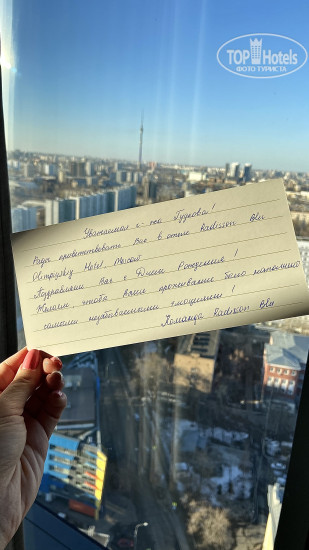 TOPHotels
ФОТО ТУРИСТА
Уважаемая г-жа Гудкова!
Рады приветствовать Вас в отеле Radisson Blu
Olympiysky Hotel, Moscow
Поздравляем Вас с Днем Рождения!
Желаем, чтобы ваше проживание было наполнено
самыми незабываемыми эмоциями!
Команда Radisson Blu